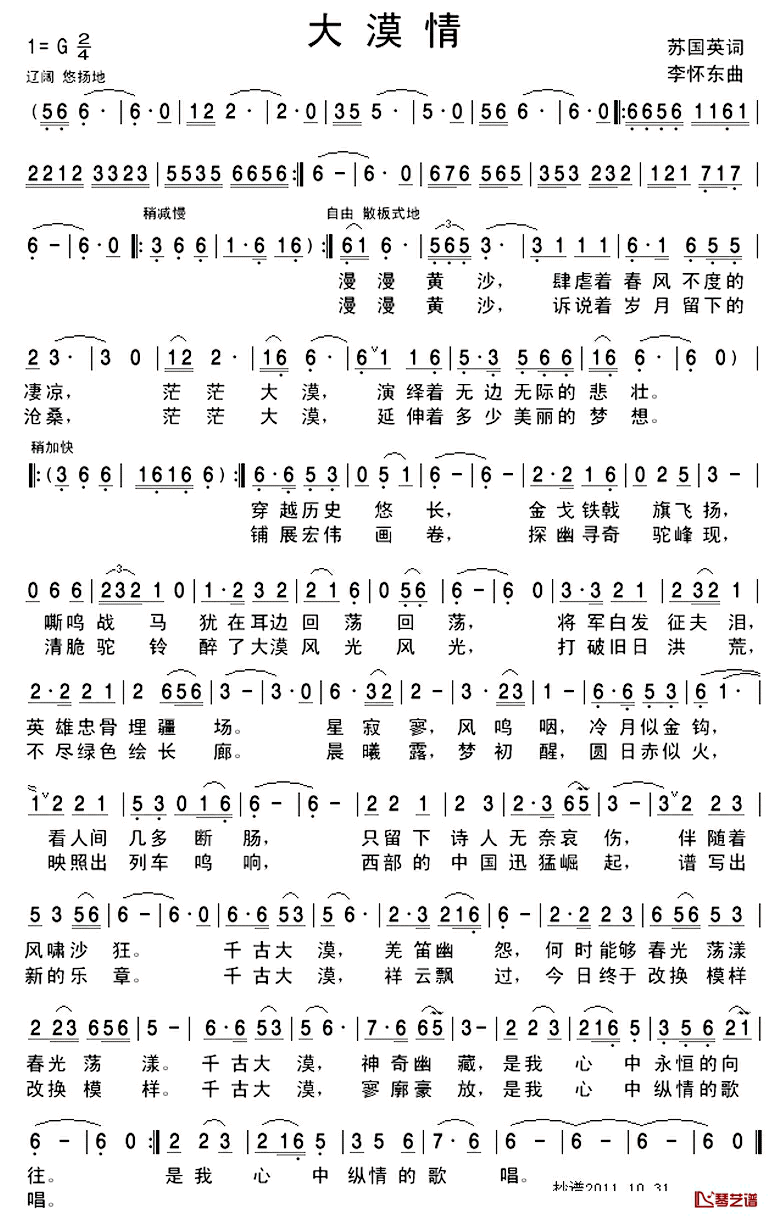 大漠情
1=G 2/4
苏国英词
辽阔 悠扬地
李怀东曲
(56 6·|6·0|12 2·|2·0|35 5·|5·0|56 6·|6·0|:6656 1161|
2212 3323|5535 6656:|6-|6·0|676 565|353 232|121 717|
稍减慢 自由 散板式地
6-|6·0|:3 6 6|1·6 16):|61 6·|565 3·|3 1 1 1|6·1 6 5 5|
漫漫黄沙, 肆虐着春风不度的
漫漫黄沙, 诉说着岁月留下的
2 3·|3 0|12 2·|16 6·|6ˇ1 1 6|5·3 5 6 6|16 6·|6 0)|
凄凉, 茫茫大漠, 演绎着无边无际的悲壮。
沧桑, 茫茫大漠, 延伸着多少美丽的梦想。
稍加快
|:(3 6 6|1616 6):|6·6 5 3|0 5 1|6-|6-|2·2 1 6|0 2 5|3-|
穿越历史悠长, 金戈铁戟旗飞扬,
铺展宏伟画卷, 探幽寻奇驼峰现,
0 6 6|232 1 0|1·2 3 2|2 1 6|0 56|6-|6 0|3·3 2 1|2 32 1|
嘶鸣战马犹在耳边回荡回荡, 将军白发征夫泪,
清脆驼铃醉了大漠风光风光, 打破旧日洪荒,
2·2 2 1|2 656|3-|3·0|6·32|2-|3·23|1-|6·6 5 3|6 1·|
英雄忠骨埋疆场。 星寂寥,风鸣咽,冷月似金钩,
不尽绿色绘长廊。 晨曦露,梦初醒,圆日赤似火,
1ˇ2 2 1|5 3 0 1 6|6-|6-|2 2 1|2 3|2·3 65|3-|3ˇ2 2 3|
看人间几多断肠, 只留下诗人无奈哀伤,伴随着
映照出列车鸣响, 西部的中国迅猛崛起,谱写出
5 3 56|6-|6·0|6·6 53|5 6·|2·3 216|5-|2·2 2 3|6 56 5 5|
风啸沙狂。 千古大漠,羌笛幽怨,何时能够春光荡漾
新的乐章。 千古大漠,祥云飘过,今日终于改换模样
2 23 656|5-|6·6 53|5-|7·6 65|3-|2 2 3|216 5|3 5 6 21|
春光荡漾。千古大漠,神奇幽藏,是我心中永恒的向
改换模样。千古大漠,寥廓豪放,是我心中纵情的歌
6-|6 0:|2 2 3|2 16 5|3 5 6|7·6|6-|6-|6-|6-|
往。 是我心中纵情的歌唱。
唱。
抄谱2011.10.31
琴艺谱